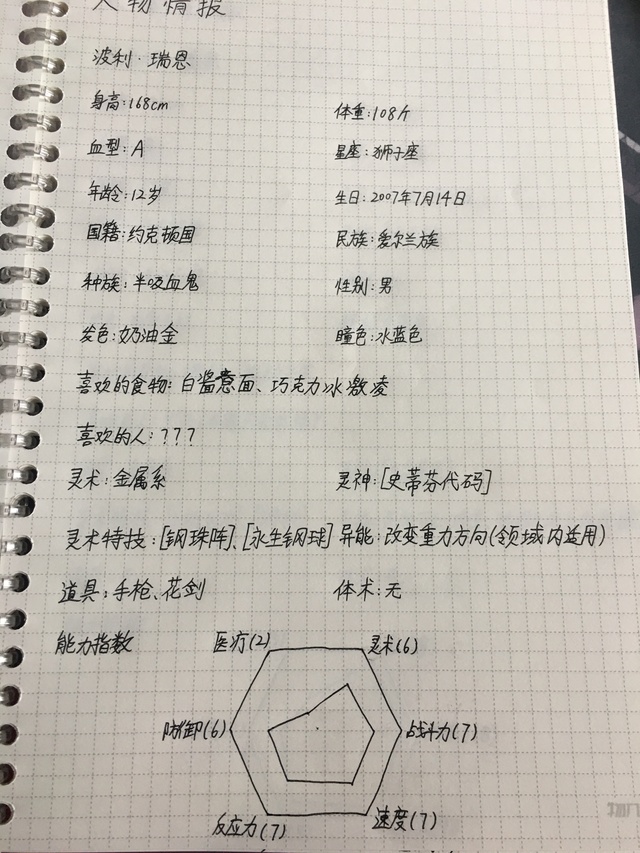 人物情报
波利·瑞恩
身高:168cm 体重:108斤
血型:A 星座:狮子座
年龄:12岁 生日:2007年7月14日
国籍:约克顿国 民族:爱尔兰族
种族:半吸血鬼 性别:男
发色:奶油金 瞳色:水蓝色
喜欢的食物:白酱意面、巧克力冰激凌
喜欢的人:???
灵术:金属系 灵神:[史蒂芬代码]
灵术特技:[钢珠阵]、[永生钢球] 异能:改变重力方向(领域内适用)
道具:手枪、花剑 体术:无
能力指数 医疗(2) 灵术(6)
防御(6) 战斗力(7)
反应力(7) 速度(7)